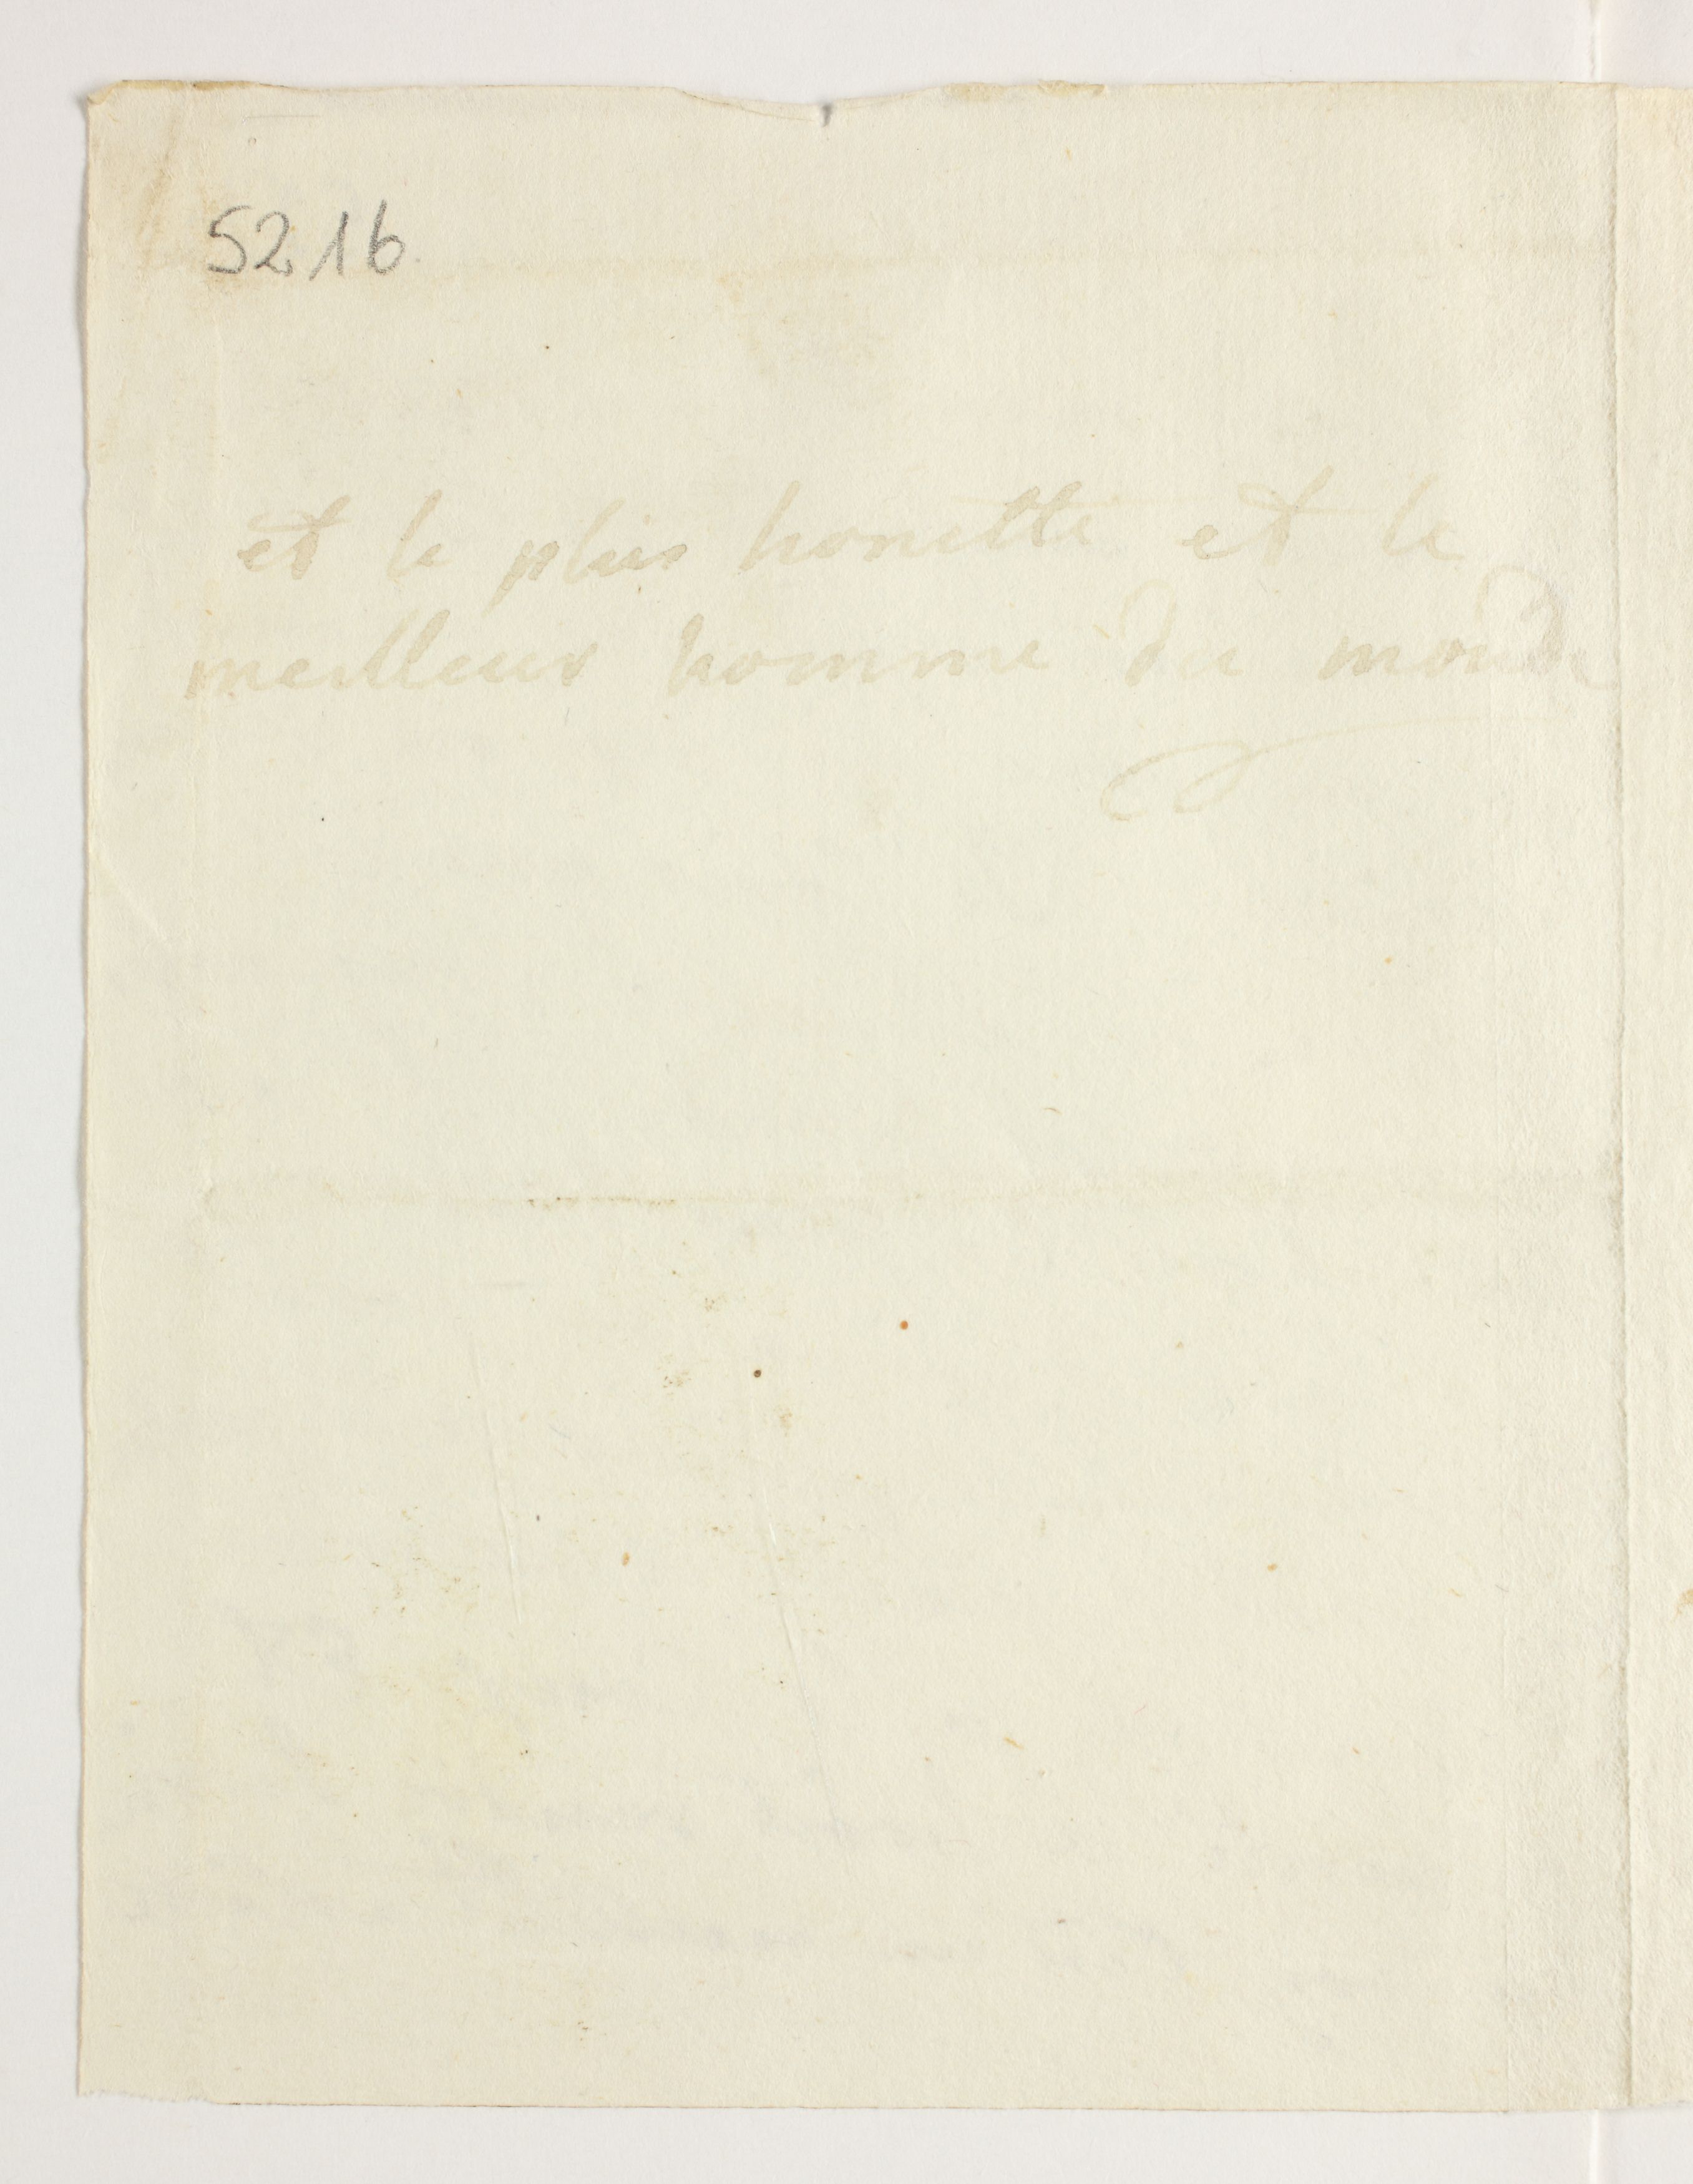 5216
et le plus honette et le
meilleur homme du monde